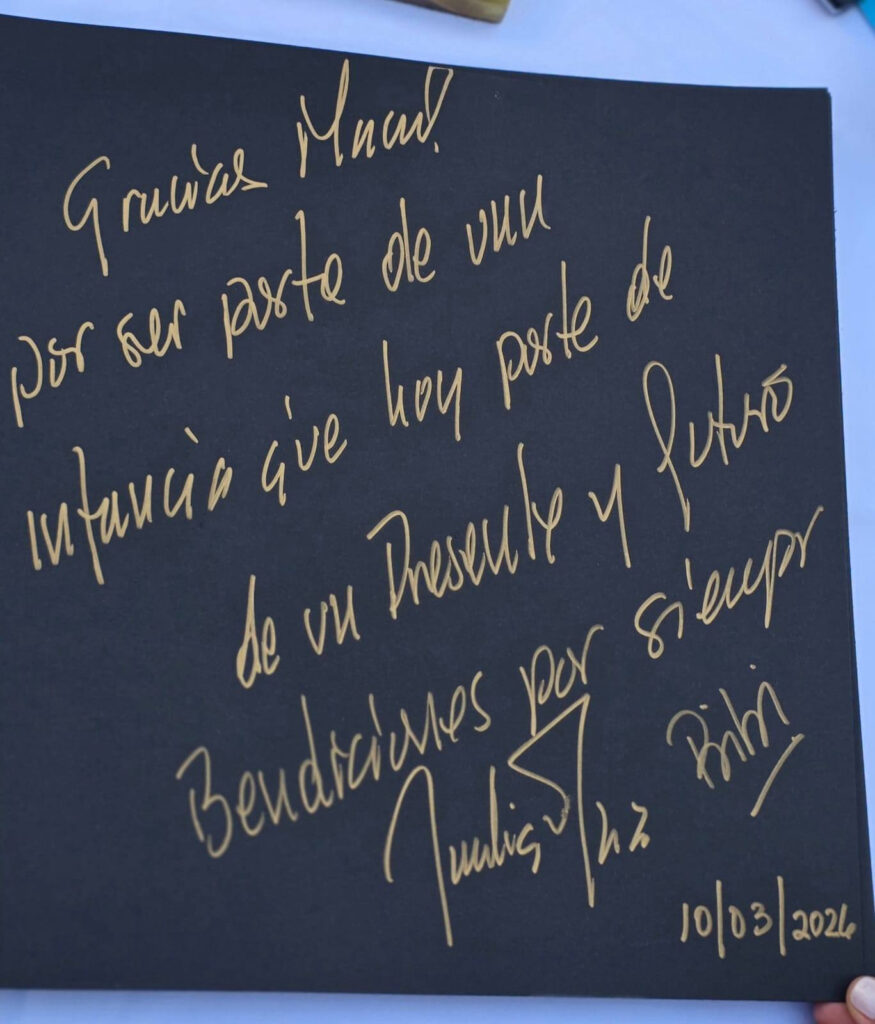 Gracias
por ser parte de una
infancia que hoy parte de
de un Presente y futuro
Bendiciones por siempre
Bibi
10/03/2026